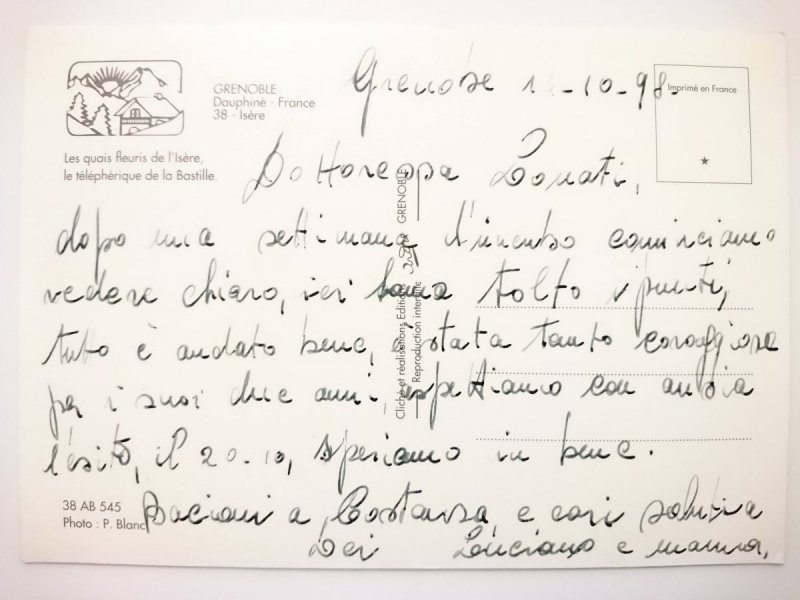 Grenoble 1 -10-98.
GRENOBLE
Dauphiné - France
38 - Isère
Imprimé en France
Les quais fleuris de l'Isère,
le téléphérique de la Bastille.
Dottoressa Donati,
dopo una settimana d'inverso cominciamo
vedere chiaro, ieri hanno tolto i punti,
tutto è andato bene, è stata tanto coraggiosa
per i suoi due anni, aspettiamo con ansia
l'esito, il 20.10, speriamo in bene.
Bacioni a Costanza, e cari saluti a
Lei Luciano e mamma,
38 AB 545
Photo : P. Blanc
Cliché et réalisations Editions GRENOBLE
Reproduction interdite